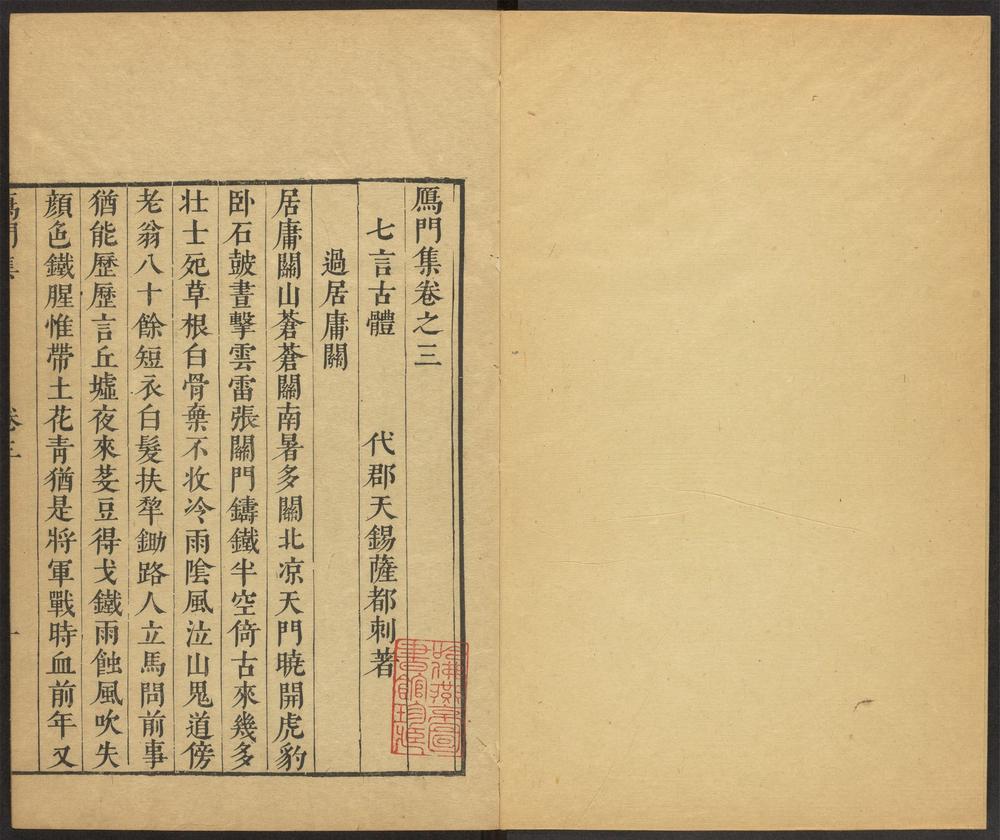 鴈門集卷之三
七言古體 代郡天錫薩都刺著
過居庸關
居庸關山蒼蒼關南暑多關北凉天門曉開虎豹
卧石鼓晝擊雲雷張關門鑄鐵半空倚古來幾多
壯士死草根白骨棄不收冷雨陰風泣山鬼道傍
老翁八十餘短衣白髮扶犂鋤路人立馬問前事
猶能歷歷言丘墟夜來芟豆得戈鐵雨蝕風吹失
顔色鐵腥惟帶土花靑猶是將軍戰時血前年又
鴈門集 卷三 一
哈佛燕京圖書館珍藏